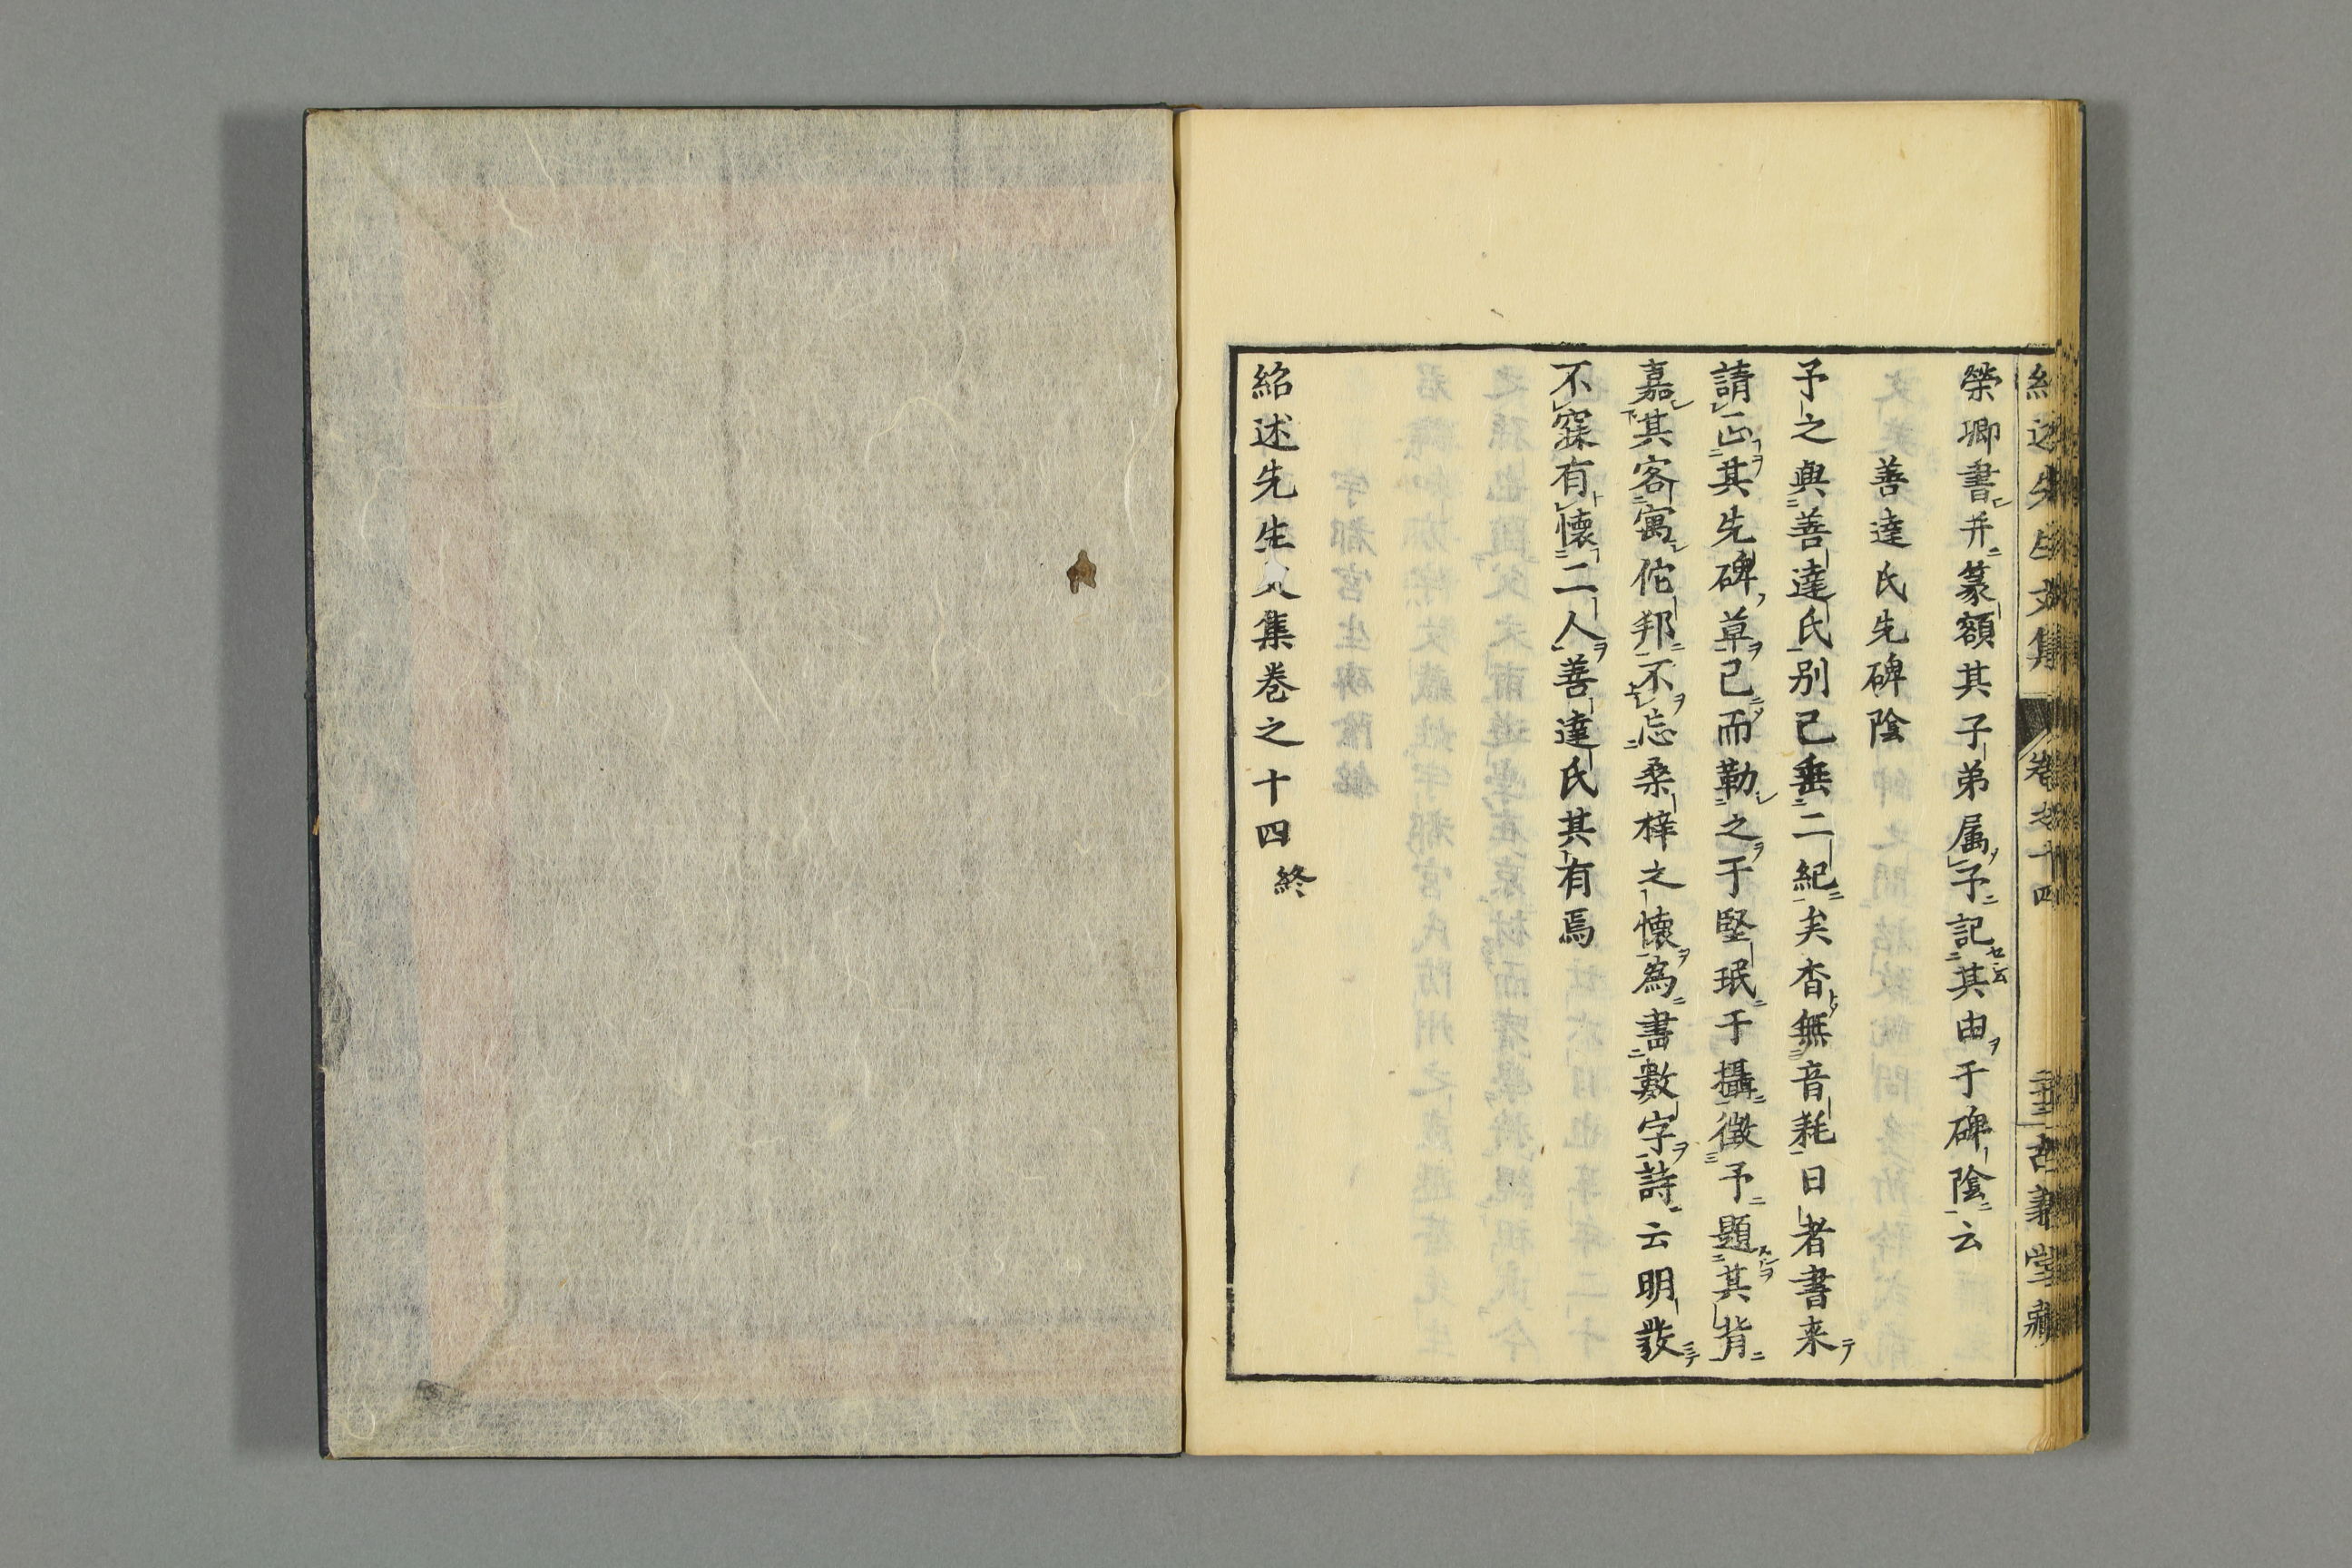 紹述先生文集
卷之十四
三十三
古義堂藏
榮卿書并篆額其子弟属予記其由于碑陰云
善達氏先碑陰
予之與善達氏別已垂二紀矣杳無音耗日者書来
請正其先碑草已而勒之于堅珉于攝徴予題其背
嘉其客寓佗邦不忘桑梓之懐為書數字詩云明發
不寐有懐二人善達氏其有焉
紹述先生文集卷之十四終